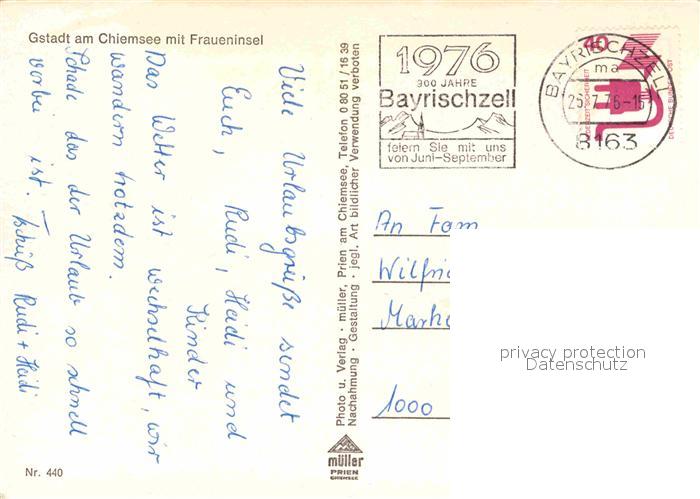 Gstadt am Chiemsee mit Fraueninsel
Viele Urlaubsgrüße sendet
Euch, Rudi, Heidi und
Kinder
Das Wetter ist wechselhaft, wir
wandern trotzdem.
Schade das der Urlaub so schnell
vorbei ist. Tschüß Rudi + Heidi
Nr. 440
Photo u. Verlag · müller, Prien am Chiemsee, Telefon 0 80 51 / 16 39
Nachahmung · Gestaltung · jegl. Art bildlicher Verwendung verboten
müller
PRIEN
CHIEMSEE
1976
900 JAHRE
Bayrischzell
feiern Sie mit uns
von Juni-September
BAYRISCHZELL
ma
8163
40
DEUTSCHE BUNDESPOST
An Fam
Wilfri
Mark
1000
privacy protection
Datenschutz